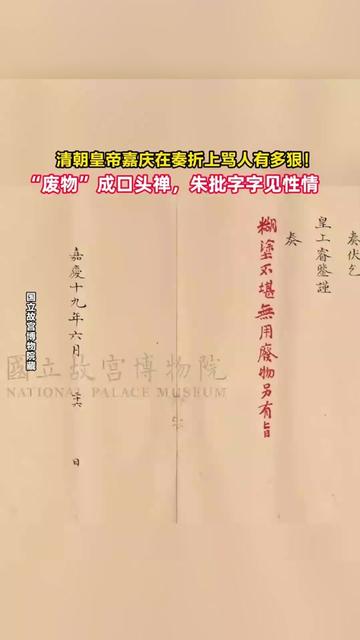 清朝皇帝嘉庆在奏折上骂人有多狠！
“废物”成口头禅，朱批字字见性情
奏伏乞
皇上睿鑒謹
奏
糊塗不堪無用廢物另有旨
嘉慶十九年六月 廿六 日
国立故宫博物院藏
國立故宮博物院
NATIONAL PALACE MUSEUM